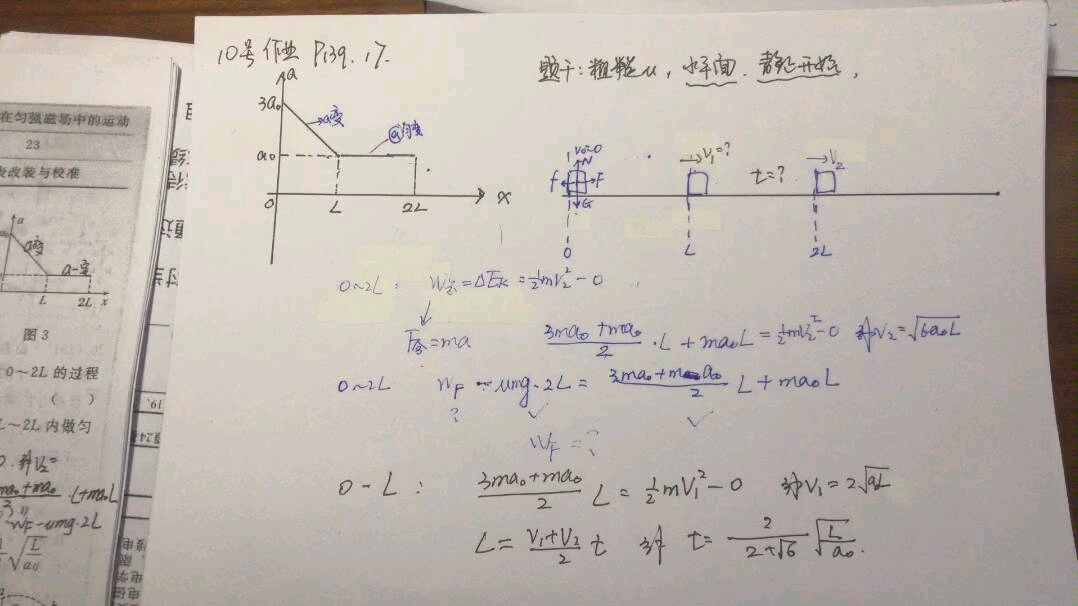 10号作业 P139. 17.
题干: 粗糙μ, 水平面. 静止开始,
a
3a₀
a变
a匀变
a₀
0
L
2L
x
V₀=0
N
f
F
G
V₁=?
t=?
V₂
0
L
2L
0~2L: W合=ΔEk=½mV₂²-0
F合=ma
(3ma₀+ma₀)/2·L+ma₀L=½mV₂²-0 得V₂=√(6a₀L)
0~2L WF-μmg·2L=(3ma₀+ma₀)/2 L+ma₀L
?
WF=?
0-L: (3ma₀+ma₀)/2 L=½mV₁²-0 得V₁=2√(aL)
L=(V₁+V₂)/2 t 得 t=2/(2+√6) √(L/a₀).
在匀强磁场中的运动
23
表改装与校准
a
a变
a-定
L
2L
x
图3
0~2L 的过程
( )
L~2L 内做匀
得V₂=
ma₀+ma₀
·L+ma₀L
WF-μmg·2L
√(L/a₀)